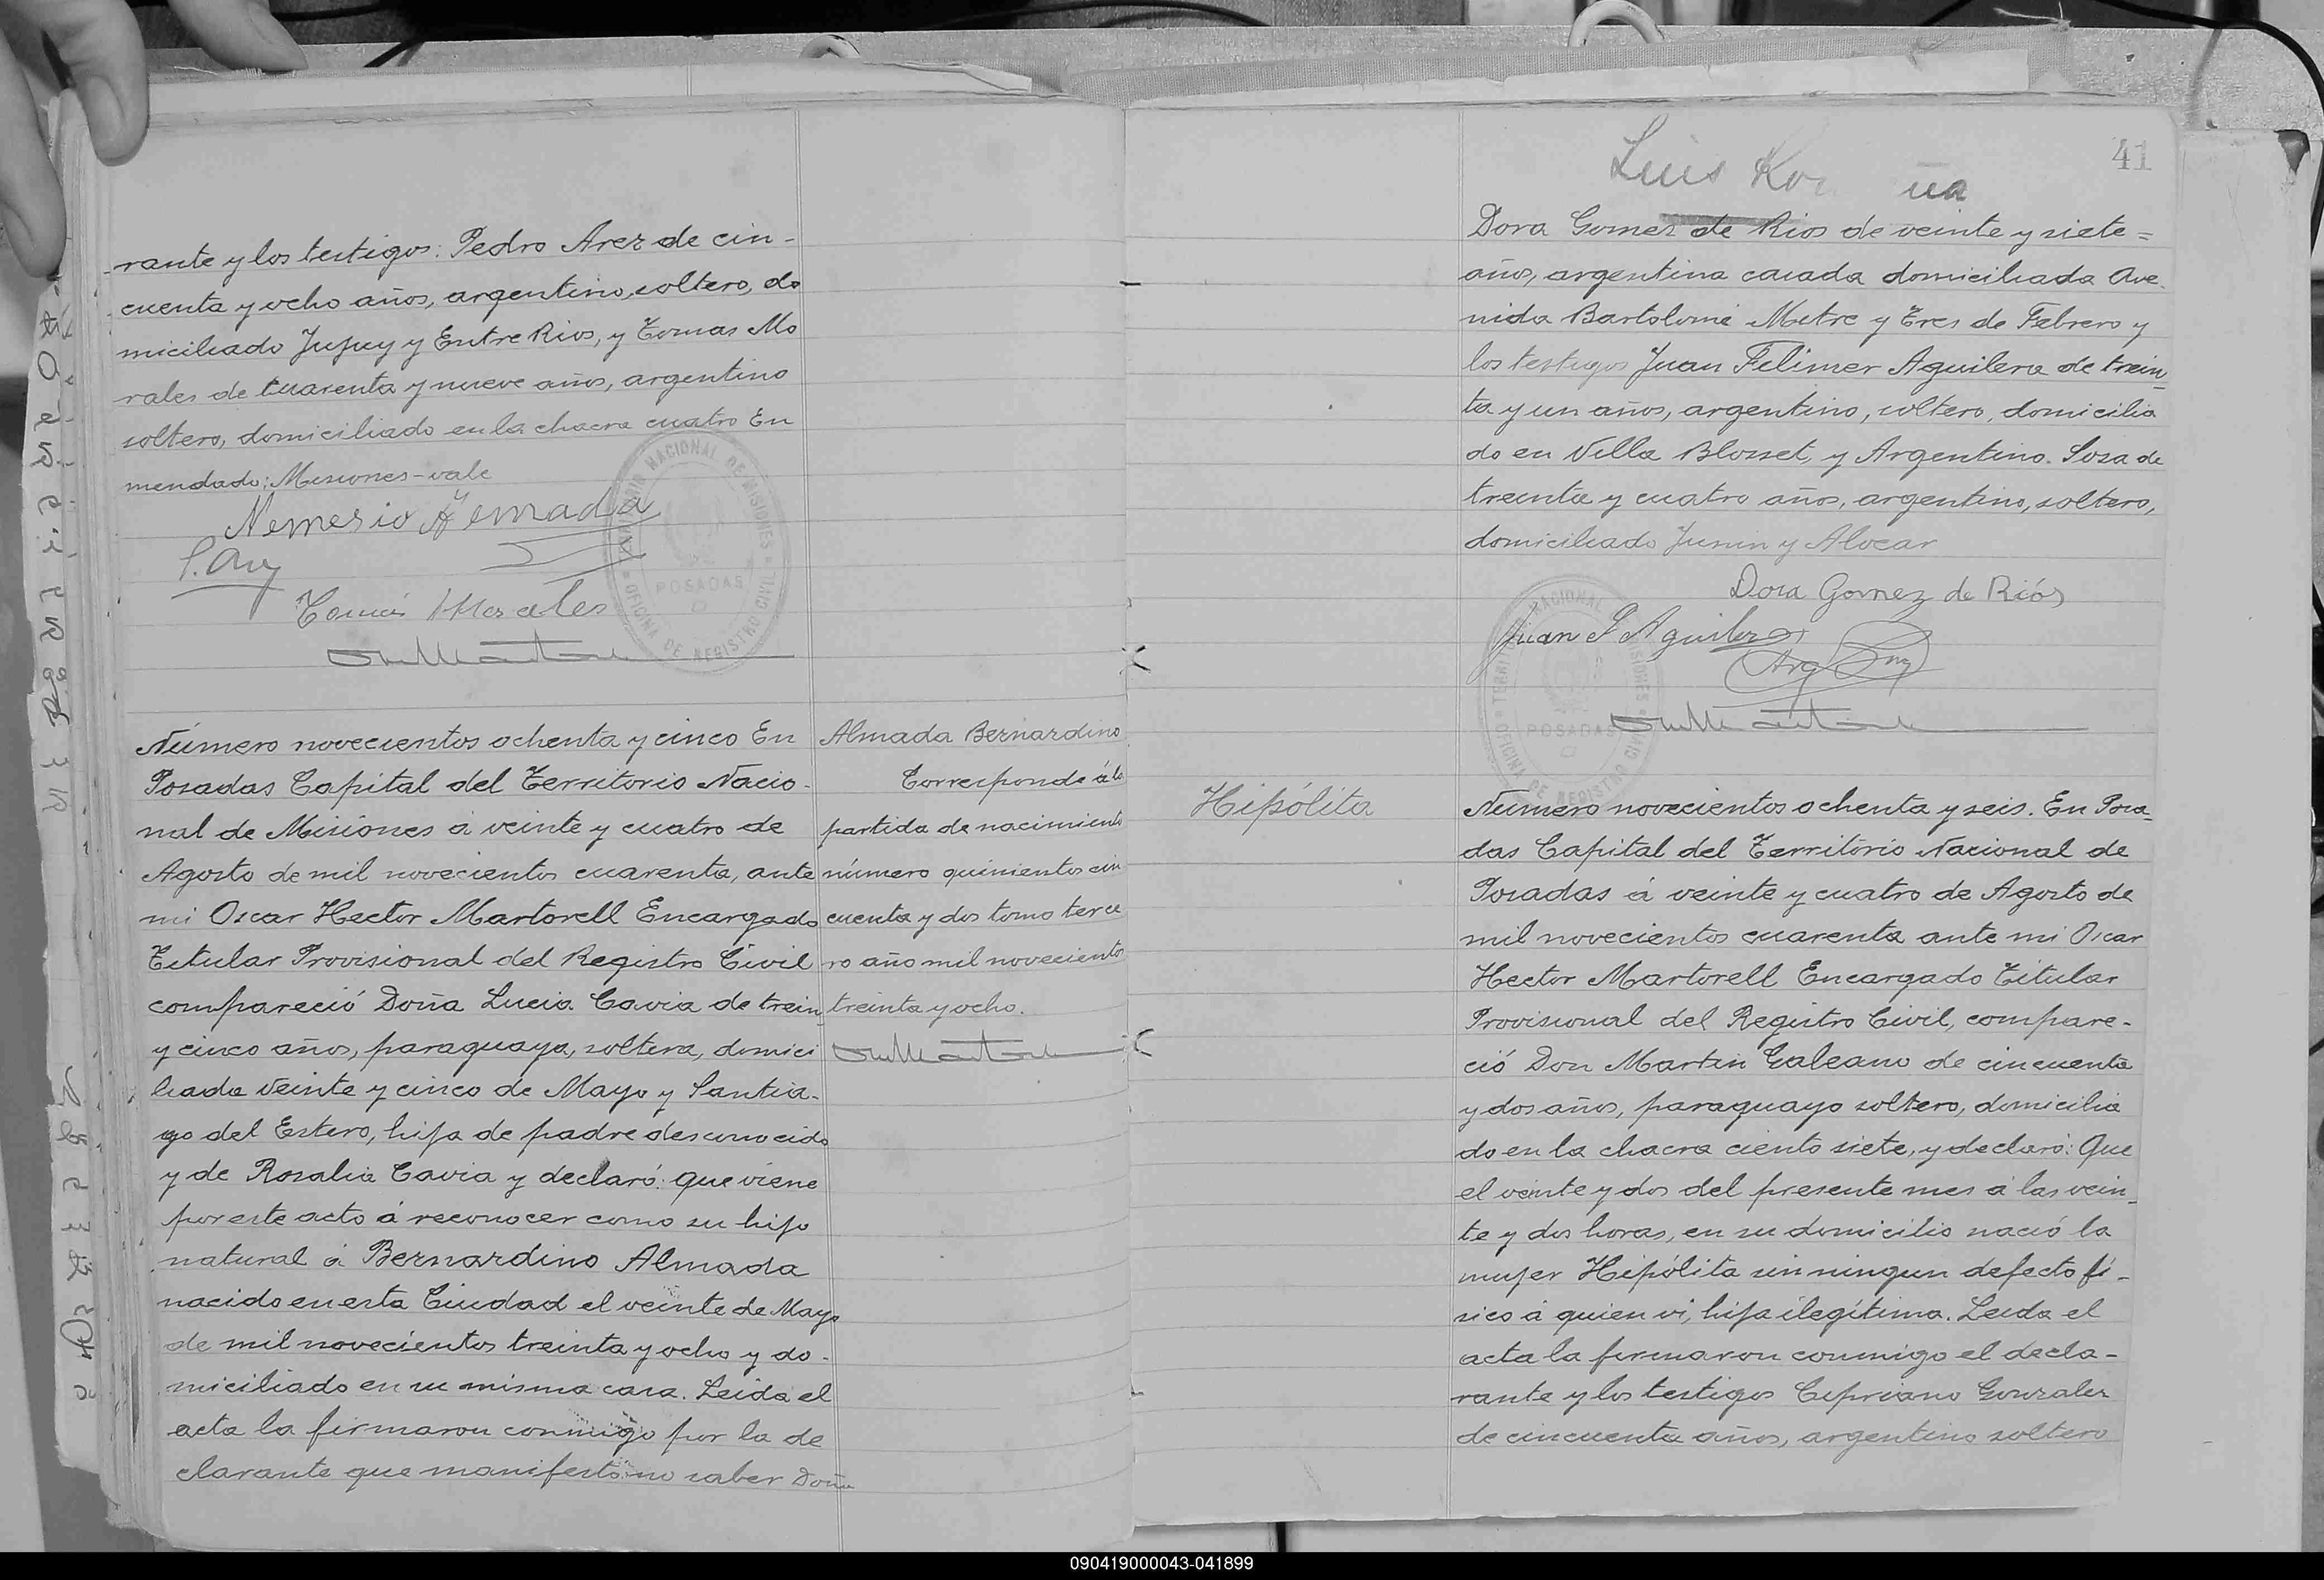 rante y los testigos: Pedro Arez de cin-
cuenta y ocho años, argentino, soltero, do
miciliado Jujuy y Entre Rios, y Tomas Mo
rales de cuarenta y nueve años, argentino
soltero, domiciliado en la chacra cuatro En
mendado: Misiones-vale
Nemesio Almada
Tomás Morales
TERRITORIO NACIONAL DE MISIONES
POSADAS
OFICINA DE REGISTRO CIVIL
Número novecientos ochenta y cinco En
Posadas Capital del Territorio Nacio-
nal de Misiones á veinte y cuatro de
Agosto de mil novecientos cuarenta, ante
mi Oscar Hector Martorell Encargado
Titular Provisional del Registro Civil
compareció Doña Lucia Cavia de trein_
y cinco años, paraguaya, soltera, domici
liada veinte y cinco de Mayo y Santia-
go del Estero, hija de padre desconocido
y de Rosalia Cavia y declaró: que viene
por este acto á reconocer como su hijo
natural á Bernardino Almada
nacido en esta Ciudad el veinte de Mayo
de mil novecientos treinta y ocho y do-
miciliado en su misma casa. Leida el
acta la firmaron conmigo por la de
clarante que manifestó no saber Doña
Almada Bernardino
Corresponde á la
partida de nacimiento
número quinientos cin
cuenta y dos tomo terce
ro año mil novecientos
treinta y ocho.
41
Luis
Dora Gomez de Rios de veinte y siete=
años, argentina casada domiciliada Ave.
nida Bartolomé Mitre y Tres de Febrero y
los testigos Juan Felimer Aguilera de trein_
ta y un años, argentino, soltero, domicilia
do en Villa Blosset, y Argentino Sosa de
treinta y cuatro años, argentino, soltero,
domiciliado Junin y Alvear
Dora Gomez de Ríos
Juan F Aguilera
TERRITORIO NACIONAL DE MISIONES
POSADAS
OFICINA DE REGISTRO CIVIL
Hipólita
Número novecientos ochenta y seis. En Posa_
das Capital del Territorio Nacional de
Posadas á veinte y cuatro de Agosto de
mil novecientos cuarenta ante mi Oscar
Hector Martorell Encargado Titular
Provisional del Registro Civil, compare-
ció Don Martin Galeano de cincuenta
y dos años, paraguayo soltero, domicilia
do en la chacra ciento siete, y declaró: Que
el veinte y dos del presente mes á las vein_
te y dos horas, en su domicilio nació la
mujer Hipólita sin ningun defecto fi-
sico á quien vi, hija ilegítima. Leida el
acta la firmaron conmigo el decla-
rante y los testigos Cipriano Gonzalez
de cincuenta años, argentino soltero
090419000043-041899